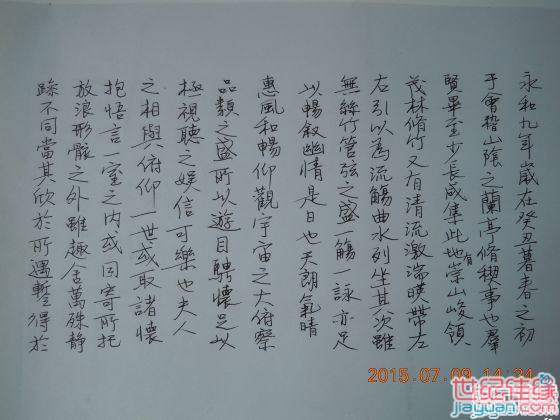 永和九年歲在癸丑暮春之初
于會稽山陰之蘭亭脩稧事也群
賢畢至少長咸集此地有崇山峻領
茂林脩竹又有清流激湍暎帶左
右引以為流觴曲水列坐其次雖
無絲竹管弦之盛一觴一詠亦足
以暢敘幽情是日也天朗氣晴
惠風和暢仰觀宇宙之大俯察
品類之盛所以遊目騁懷足以
極視聽之娛信可樂也夫人
之相與俯仰一世或取諸懷
抱悟言一室之內或因寄所托
放浪形骸之外雖趣舍萬殊靜
躁不同當其欣於所遇暫得於
2015.07.09 14:24
世纪佳缘
jiayuan.com